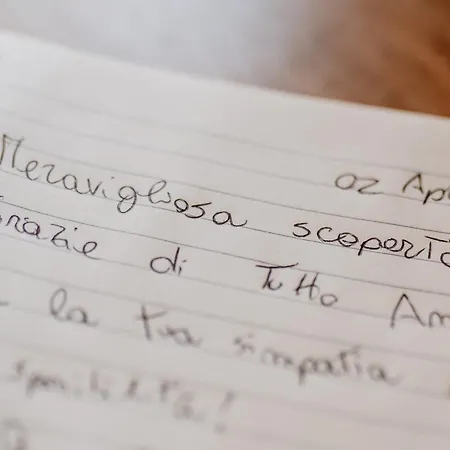 02 Ap
Meravigliosa scoperta
Grazie di Tutto Am
la tua simpatia